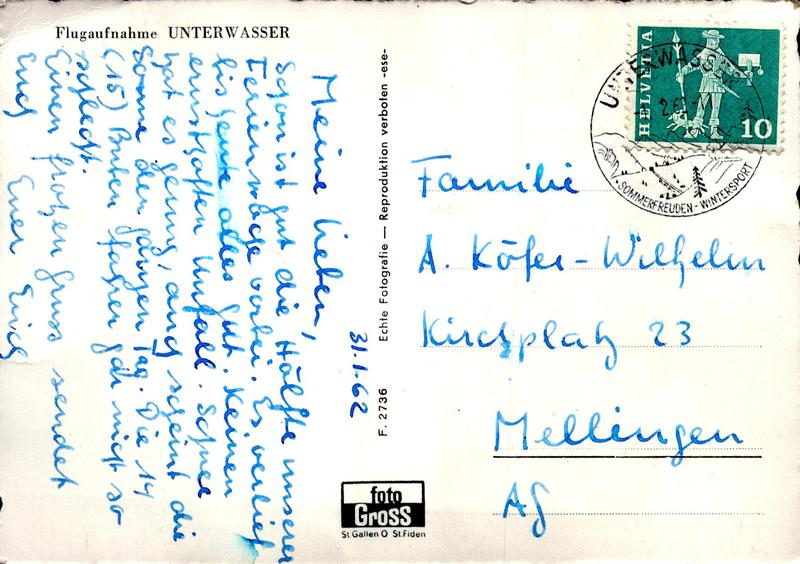 Flugaufnahme UNTERWASSER
31.1.62
Meine lieben,
schon ist gut die Hälfte unserer
Ferienwoche vorbei. Es verlief
bis heute alles gut. Keinen
ernsthaften Unfall. Schnee
hat es genug, auch scheint die
Sonne den ganzen Tag. Die 14
(15) Buben fahren gar nicht so
schlecht.
Einen frohen Gruss sendet
Euch Euer Erich
F. 2736 Echte Fotografie — Reproduktion verboten -ese-
foto
Gross
St. Gallen O St. Fiden
HELVETIA
10
UNTERWASSER
SOMMERFREUDEN - WINTERSPORT
Familie
A. Köfer-Wilhelm
Kirchplatz 23
Mellingen
AG